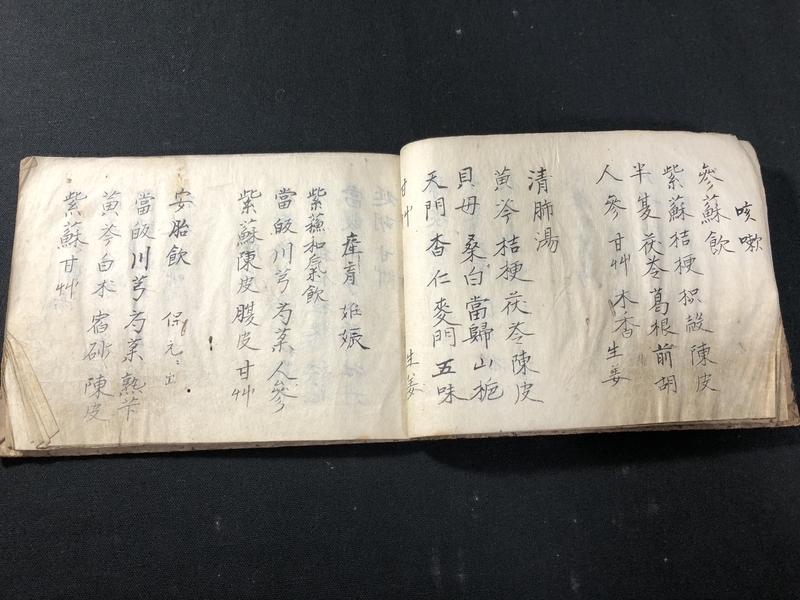 咳嗽
參蘇飲
紫蘇桔梗枳殼陳皮
半夏茯苓葛根前胡
人參甘艸木香生姜
清肺湯
黄芩桔梗茯苓陳皮
貝母桑白當歸山梔
天門杏仁麥門五味
甘艸 生姜
產育 姙娠
紫蘓和氣飲
當皈川芎芍薬人參
紫蘇陳皮腹皮甘艸
安胎飲 保元
當皈川芎芍薬熟芐
黄芩白朮宿砂陳皮
紫蘇甘艸